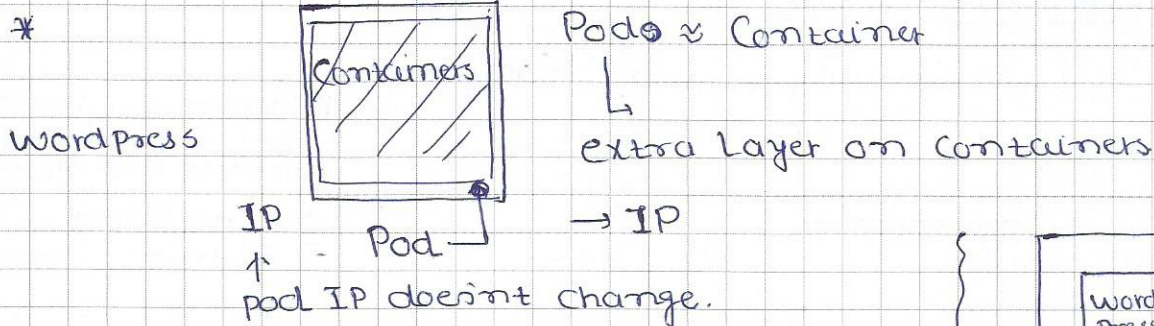 *
Pods ≈ Container
Containers
wordpress
extra Layer on containers
IP
→ IP
Pod
↑
pod IP doesn't change.
word